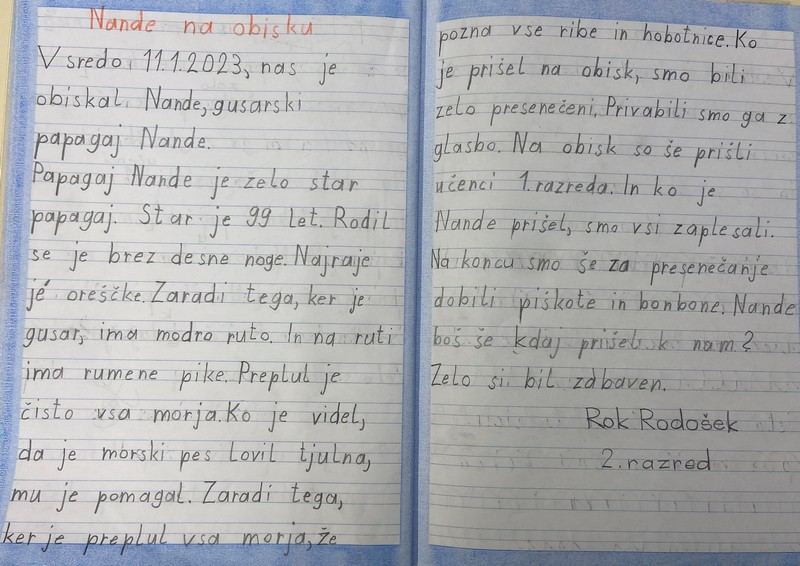 Nande na obisku
V sredo, 11.1.2023, nas je
obiskal Nande, gusarski
papagaj Nande.
Papagaj Nande je zelo star
papagaj. Star je 99 let. Rodil
se je brez desne noge. Najraje
jé oreščke. Zaradi tega, ker je
gusar, ima modro ruto. In na ruti
ima rumene pike. Preplul je
čisto vsa morja. Ko je videl,
da je morski pes lovil tjulna,
mu je pomagal. Zaradi tega,
ker je preplul vsa morja, že
pozna vse ribe in hobotnice. Ko
je prišel na obisk, smo bili
zelo presenečeni. Privabili smo ga z
glasbo. Na obisk so še prišli
učenci 1. razreda. In ko je
Nande prišel, smo vsi zaplesali.
Na koncu smo še za presenečanje
dobili piškote in bonbone. Nande
boš še kdaj prišel k nam?
Zelo si bil zabaven.
Rok Rodošek
2. razred